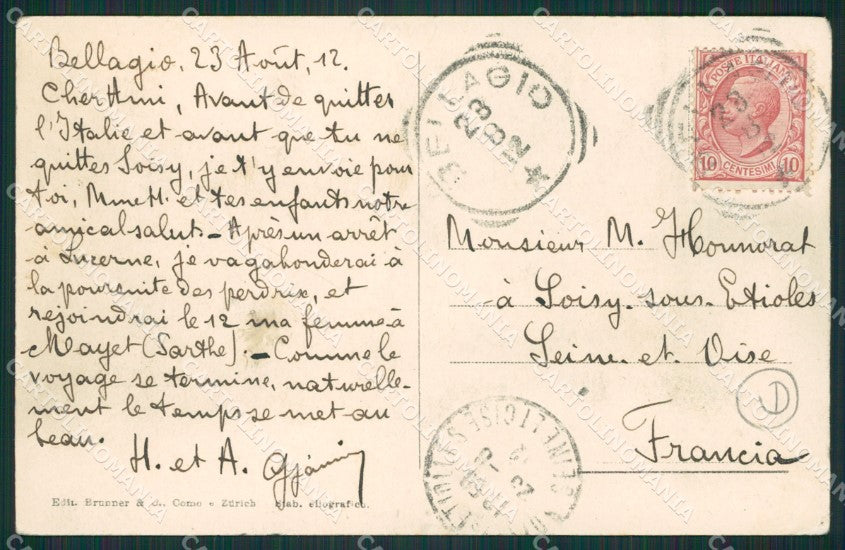 Bellagio, 23 Août, 12.
Cher Ami, Avant de quitter
l'Italie et avant que tu ne
quittes Soisy, je t'y envoie pour
toi, Mme H. et tes enfants notre
amical salut - Après un arrêt
à Lucerne, je vagabonderai à
la poursuite des perdrix, et
rejoindrai le 12 ma femme à
Mayet (Sarthe). - Comme le
voyage se termine, naturelle-
ment le temps se met au
beau.
H. et A.
Edit. Brunner & Co., Como e Zürich Stab. eliografico.
BELLAGIO
23 8 12
POSTE ITALIANE
10 CENTESIMI 10
Monsieur M. Honnorat
à Soisy-sous-Etioles
Seine-et-Oise
Francia
D
SEINE ET OISE
CARTOLINOMANIA